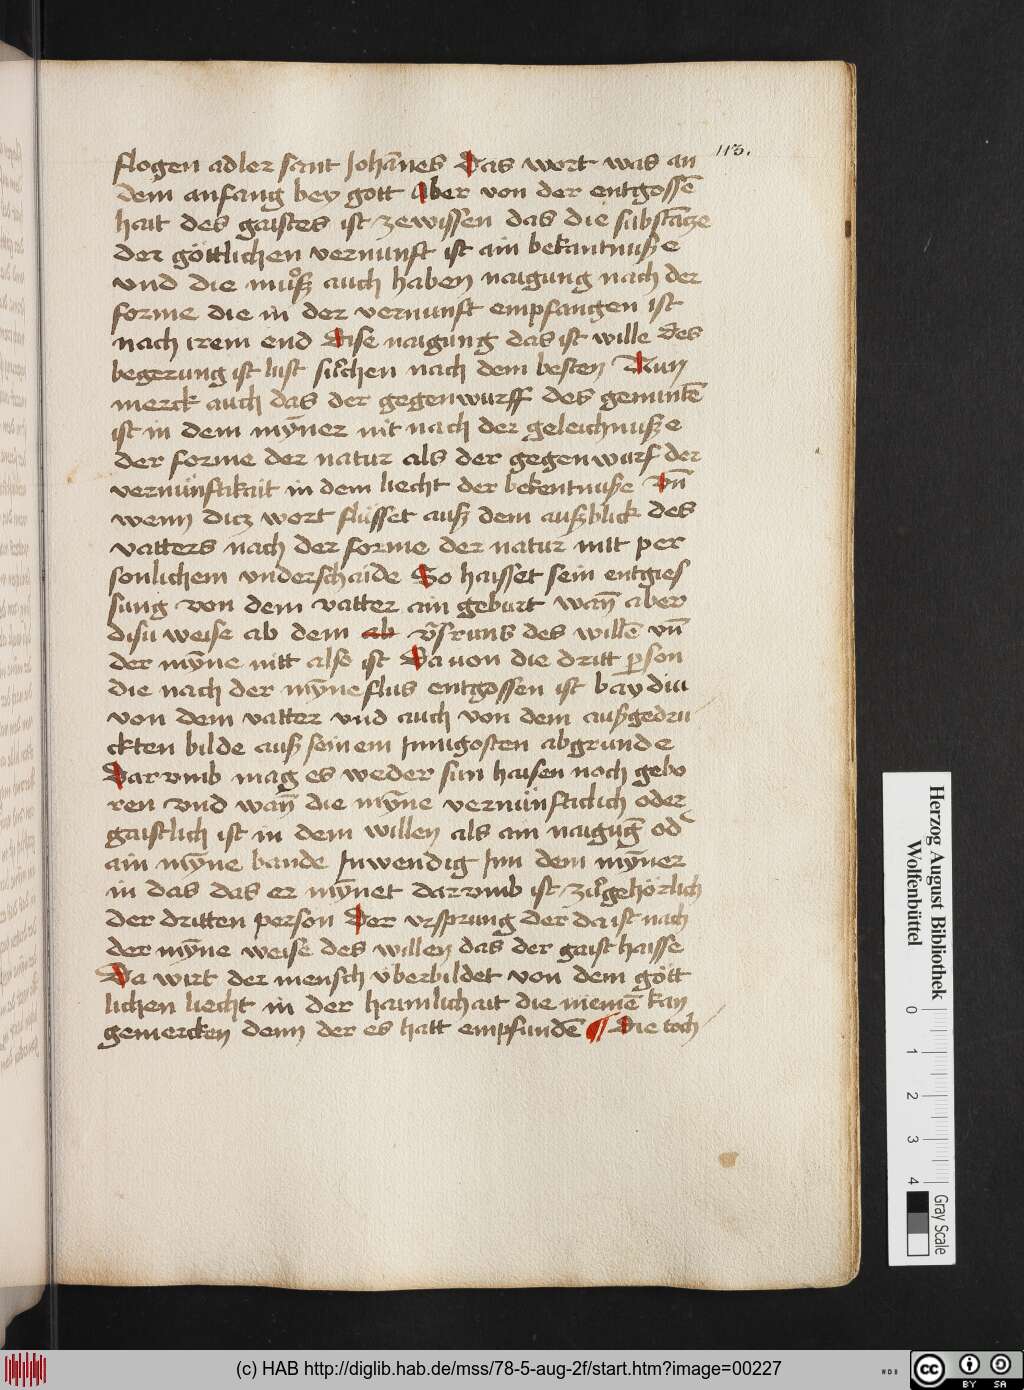 113.
flogen adler sant Johānes Das wort was an
dem anfang bey gott Aber von der entgossē
hait des gaistes ist zewissen das die substācze
der göttlichen vernunft ist ain bekantnuße
vnd die muͦß auch haben naigung nach der
forme die in der vernunft empfangen ist
nach irem end Dise naigung das ist wille des
begerung ist lust suͦchen nach dem besten Nun
merck auch das der gegenwurff des gemintē
ist in dem mȳner nit nach der geleichnuße
der forme der natur als der gegenwurf der
vernünftikait in dem liecht der bekentnuße Vn̄
wenn dicz wort flüsset auß dem außblick des
vatters nach der forme der natur mit per
sonlichem vnderschaide So haisset sein entgies
sung von dem vatter ain geburt wan̄ aber
disu weise ab dem ab vr̄sruns des willē vn̄
der mȳne nitt also ist Da von die dritt person
die nach der mȳne flus entgossen ist bay diu
von dem vatter vnd auch von dem außgedru
ckten bilde auß seinem Jnnigosten abgrunde
Dar vmb mag es weder sun haisen noch gebo
ren vnd wan̄ die mȳne vernünfticlich oder
gaistlich ist in dem willen als ain naigūg od
ain mȳne bande Jnwendig Jnn dem mȳner
in das das er mȳnet dar vmb ist zuͦgehörlich
der dritten person Der vrsprung der da ist nach
der mȳne weise des willen das der gaist haisse
Da wirt der mensch v̈berbildet von dem gött
lichen liecht in der haimlichait die niemē kan
gemercken denn der es hatt empfundē ¶ Die toch
Herzog August Bibliothek
Wolfenbüttel
0
1
2
3
4
Gray Scale
(c) HAB http://diglib.hab.de/mss/78-5-aug-2f/start.htm?image=00227
WDB
cc
BY SA